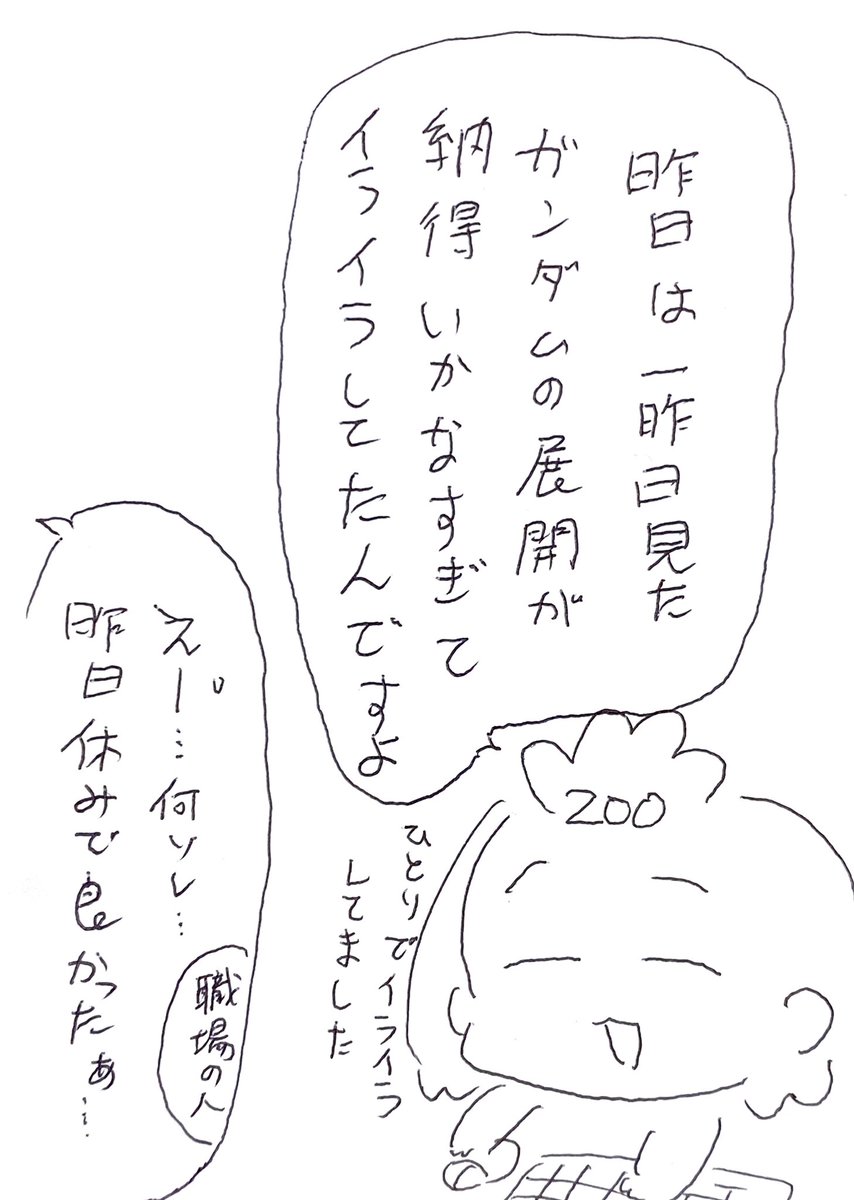 昨日は一昨日見た
ガンダムの展開が
納得いかなすぎて
イライラしてたんですよ
ZOO
ひとりでイライラ
してました
えー…何ソレ…
昨日休みで良かったぁ…
職場の人